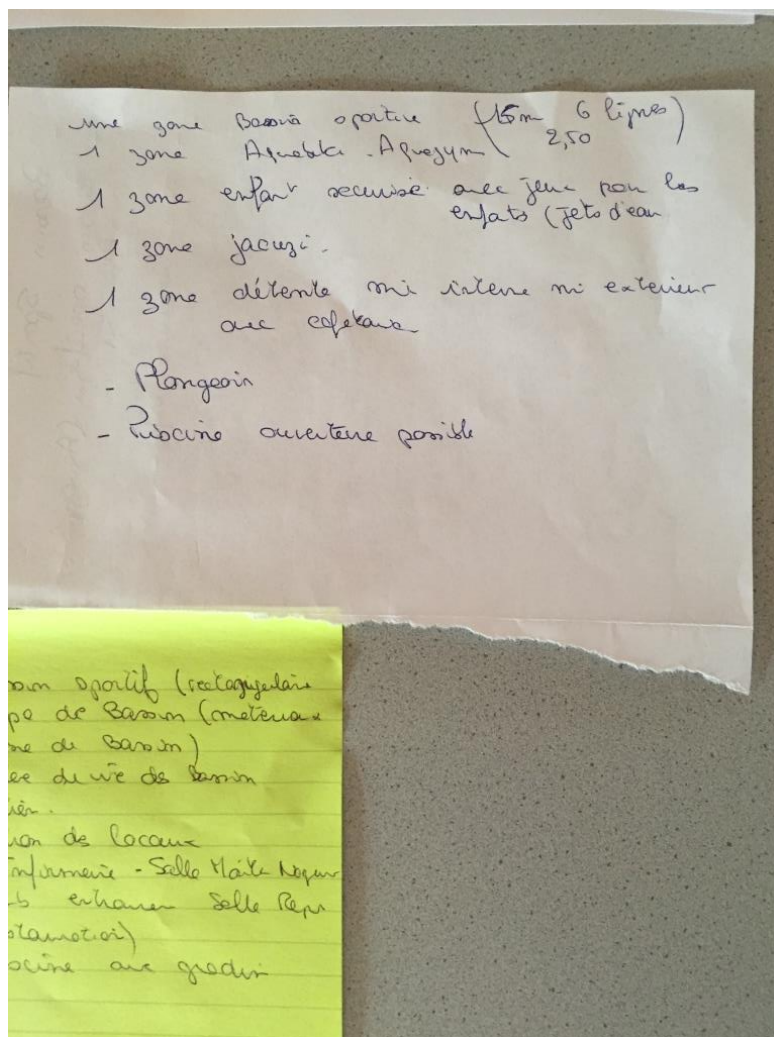 une zone Bassin sportive (15m 6 lignes)
2,50
1 zone Aquabike - Aquagym
1 zone enfant securisé avec jeux pour les
enfats (jets d'eau
1 zone jacuzi.
1 zone détente mi interne mi exterieur
avec
- Plongeoir
- Piscine ouverture possible
sportif (rectagugulaire
de Bassin (materiaux
de Bassin)
du vie de Bassin
de locaux
infirmerie - Salle Maitre Nageur
Salle Repos
ocine avec gradin